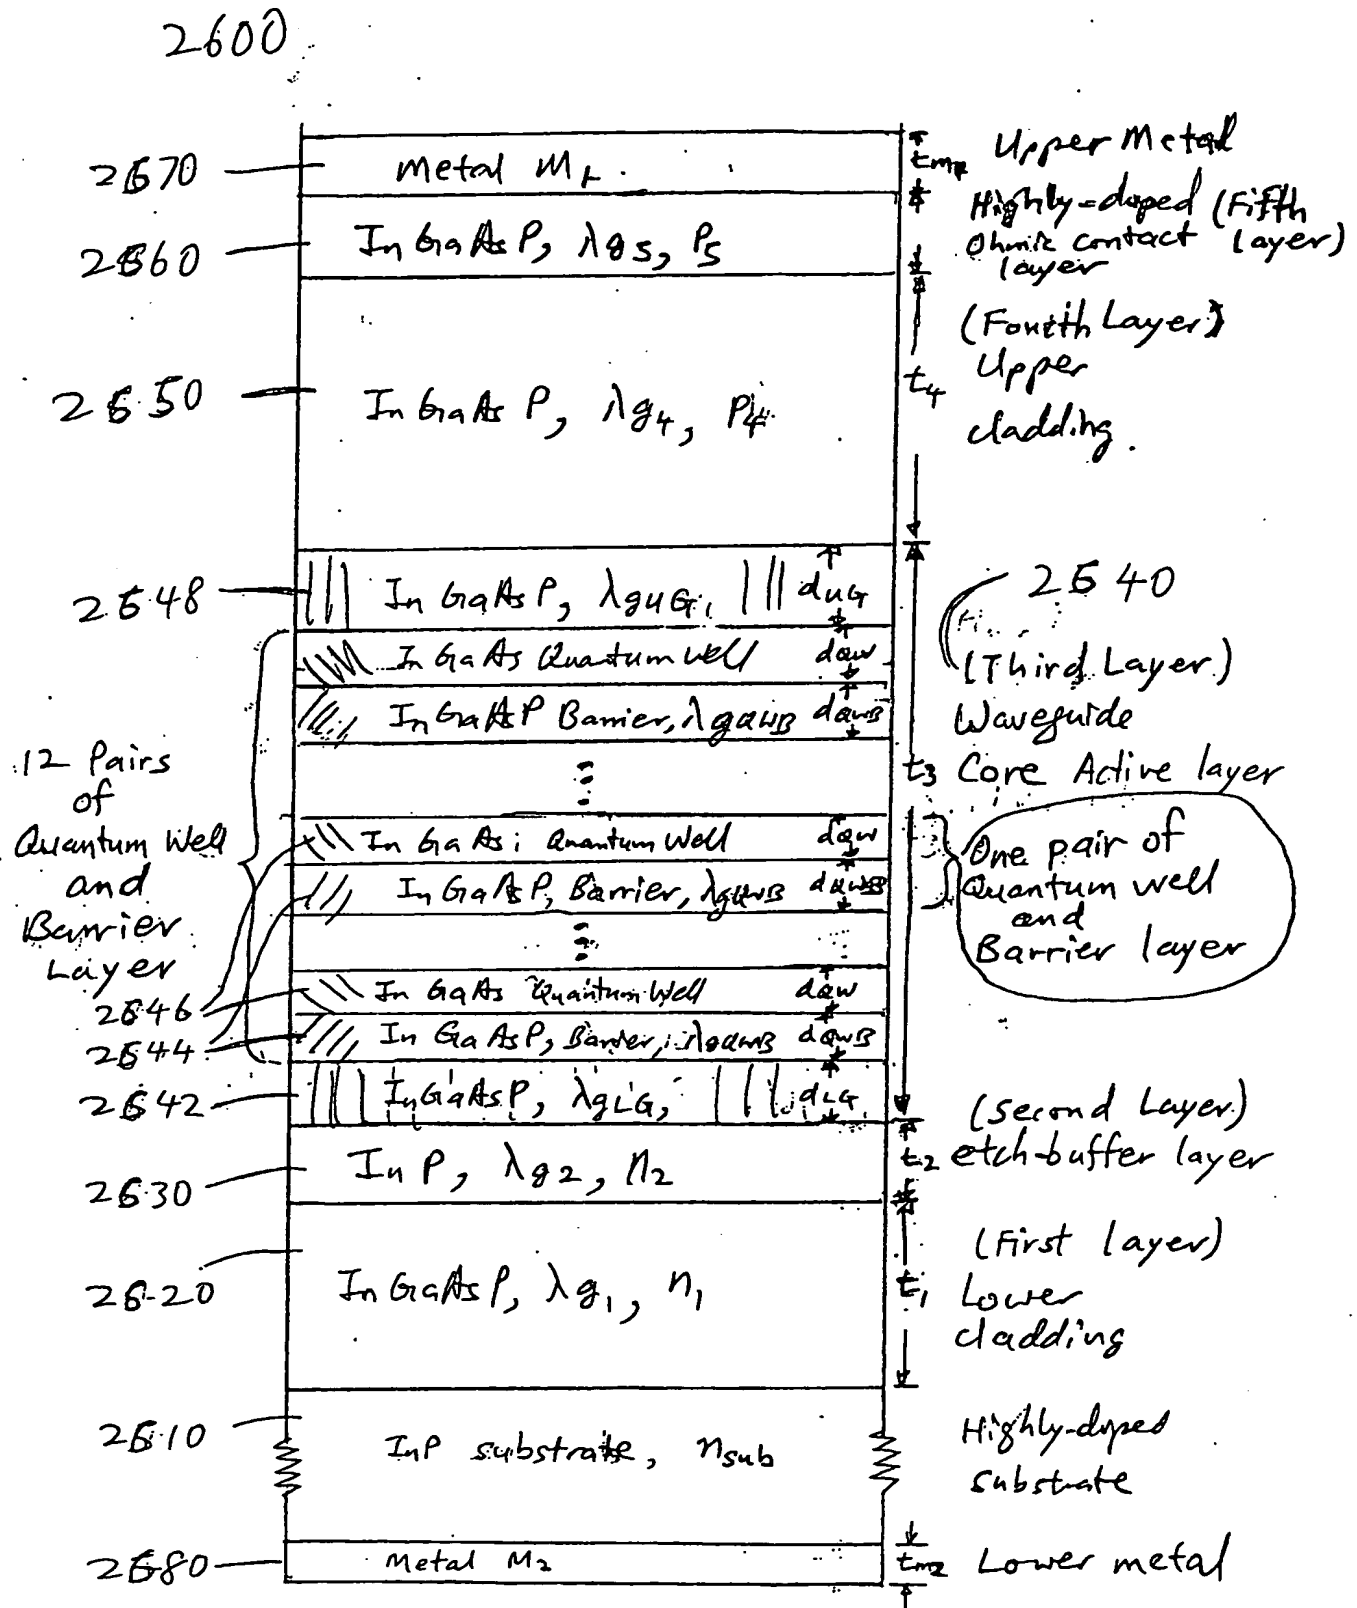 2600
2670
Metal M1
tm1
Upper Metal
Highly-doped (Fifth
Ohmic contact layer)
layer
2660
InGaAsP, λg5, P5
(Fourth Layer)
Upper
cladding.
t4
2650
InGaAsP, λg4, P4
2648
InGaAsP, λguG,
duG
2640
(Third Layer)
Waveguide
Core Active layer
t3
InGaAs Quantum Well
dQW
InGaAsP Barrier, λgQWB
dQWB
12 Pairs
of
Quantum Well
and
Barrier
Layer
InGaAs Quantum Well
dQW
InGaAsP, Barrier, λgQWB
dQWB
One pair of
Quantum well
and
Barrier layer
2646
InGaAs Quantum Well
dQW
2644
InGaAsP, Barrier, λgQWB
dQWB
2642
InGaAsP, λgLG,
dLG
(Second Layer)
etch-buffer layer
t2
2630
InP, λg2, n2
(First layer)
Lower
cladding
t1
2620
InGaAsP, λg1, n1
2610
InP substrate, nsub
Highly-doped
substrate
2680
Metal M2
tm2
Lower metal